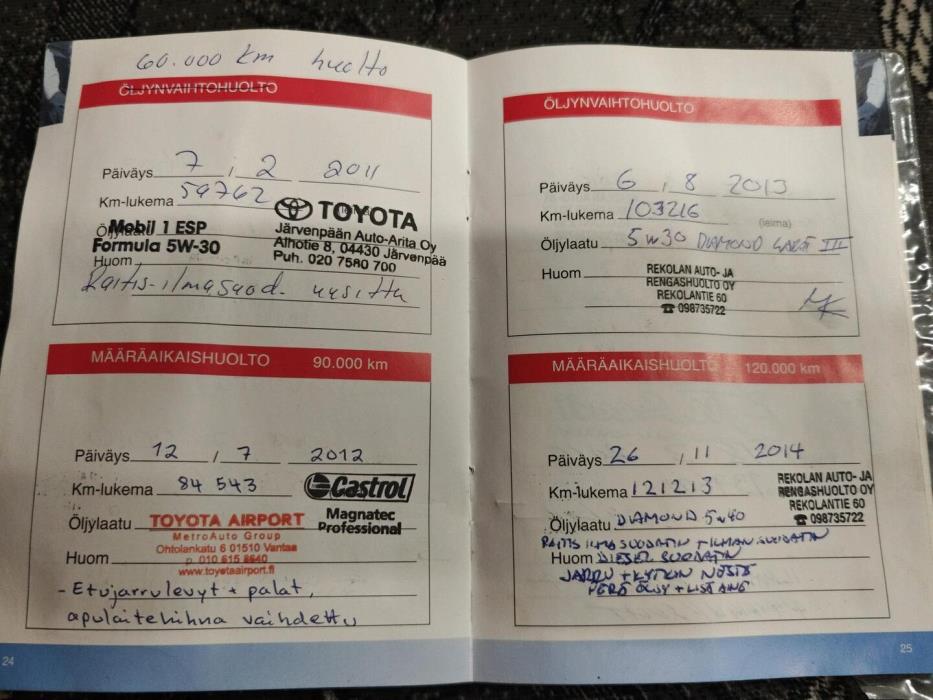 60.000 km huolto
ÖLJYNVAIHTOHUOLTO
Päiväys 7 , 2 2011
Km-lukema 59762
TOYOTA
Järvenpään Auto-Arita Oy
Alhotie 8, 04430 Järvenpää
Puh. 020 7580 700
Öljylaatu Mobil 1 ESP
Formula 5W-30
Huom
Raitis-ilmasuod. uusittu
MÄÄRÄAIKAISHUOLTO 90.000 km
Päiväys 12 / 7 2012
Km-lukema 84 543
Castrol
Magnatec
Professional
Öljylaatu TOYOTA AIRPORT
MetroAuto Group
Ohtolankatu 6 01510 Vantaa
Huom p. 010 615 8640
www.toyotaairport.fi
- Etujarrulevyt + palat,
apulaitehihna vaihdettu
24
ÖLJYNVAIHTOHUOLTO
Päiväys 6 , 8 2013
Km-lukema 103216
(leima)
Öljylaatu 5w30 DIAMOND III
Huom REKOLAN AUTO- JA
RENGASHUOLTO OY
REKOLANTIE 60
☎ 098735722
MÄÄRÄAIKAISHUOLTO 120.000 km
Päiväys 26 / 11 2014
Km-lukema 121213
REKOLAN AUTO- JA
RENGASHUOLTO OY
REKOLANTIE 60
☎ 098735722
Öljylaatu DIAMOND 5w40
RAITIS ILMA SUODATIN + ILMAN SUODATIN
Huom DIESEL SUODATIN
JARRU + KYTKIN NESTE
PERÄ ÖLJY + LISÄAINE
25